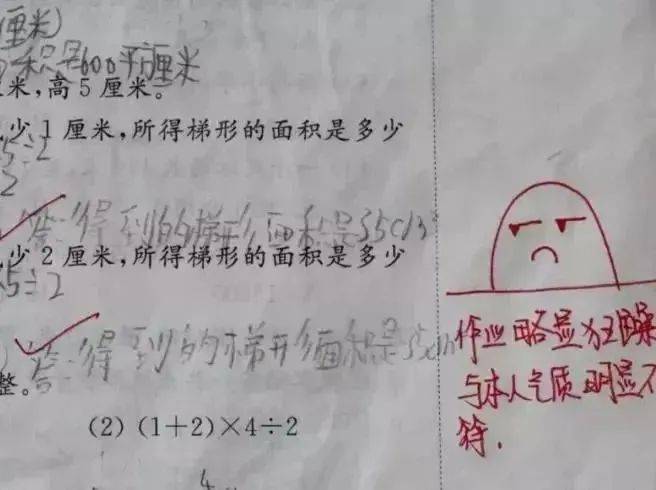 厘米)
积是600平方厘米
米,高5厘米。
少1厘米,所得梯形的面积是多少
5÷2
2
答:得到的梯形面积是35cm²
少2厘米,所得梯形的面积是多少
×5÷2
答:得到的梯形面积是
整。
(2) (1+2)×4÷2
4
作业略显狂躁
与本人气质明显不
符.